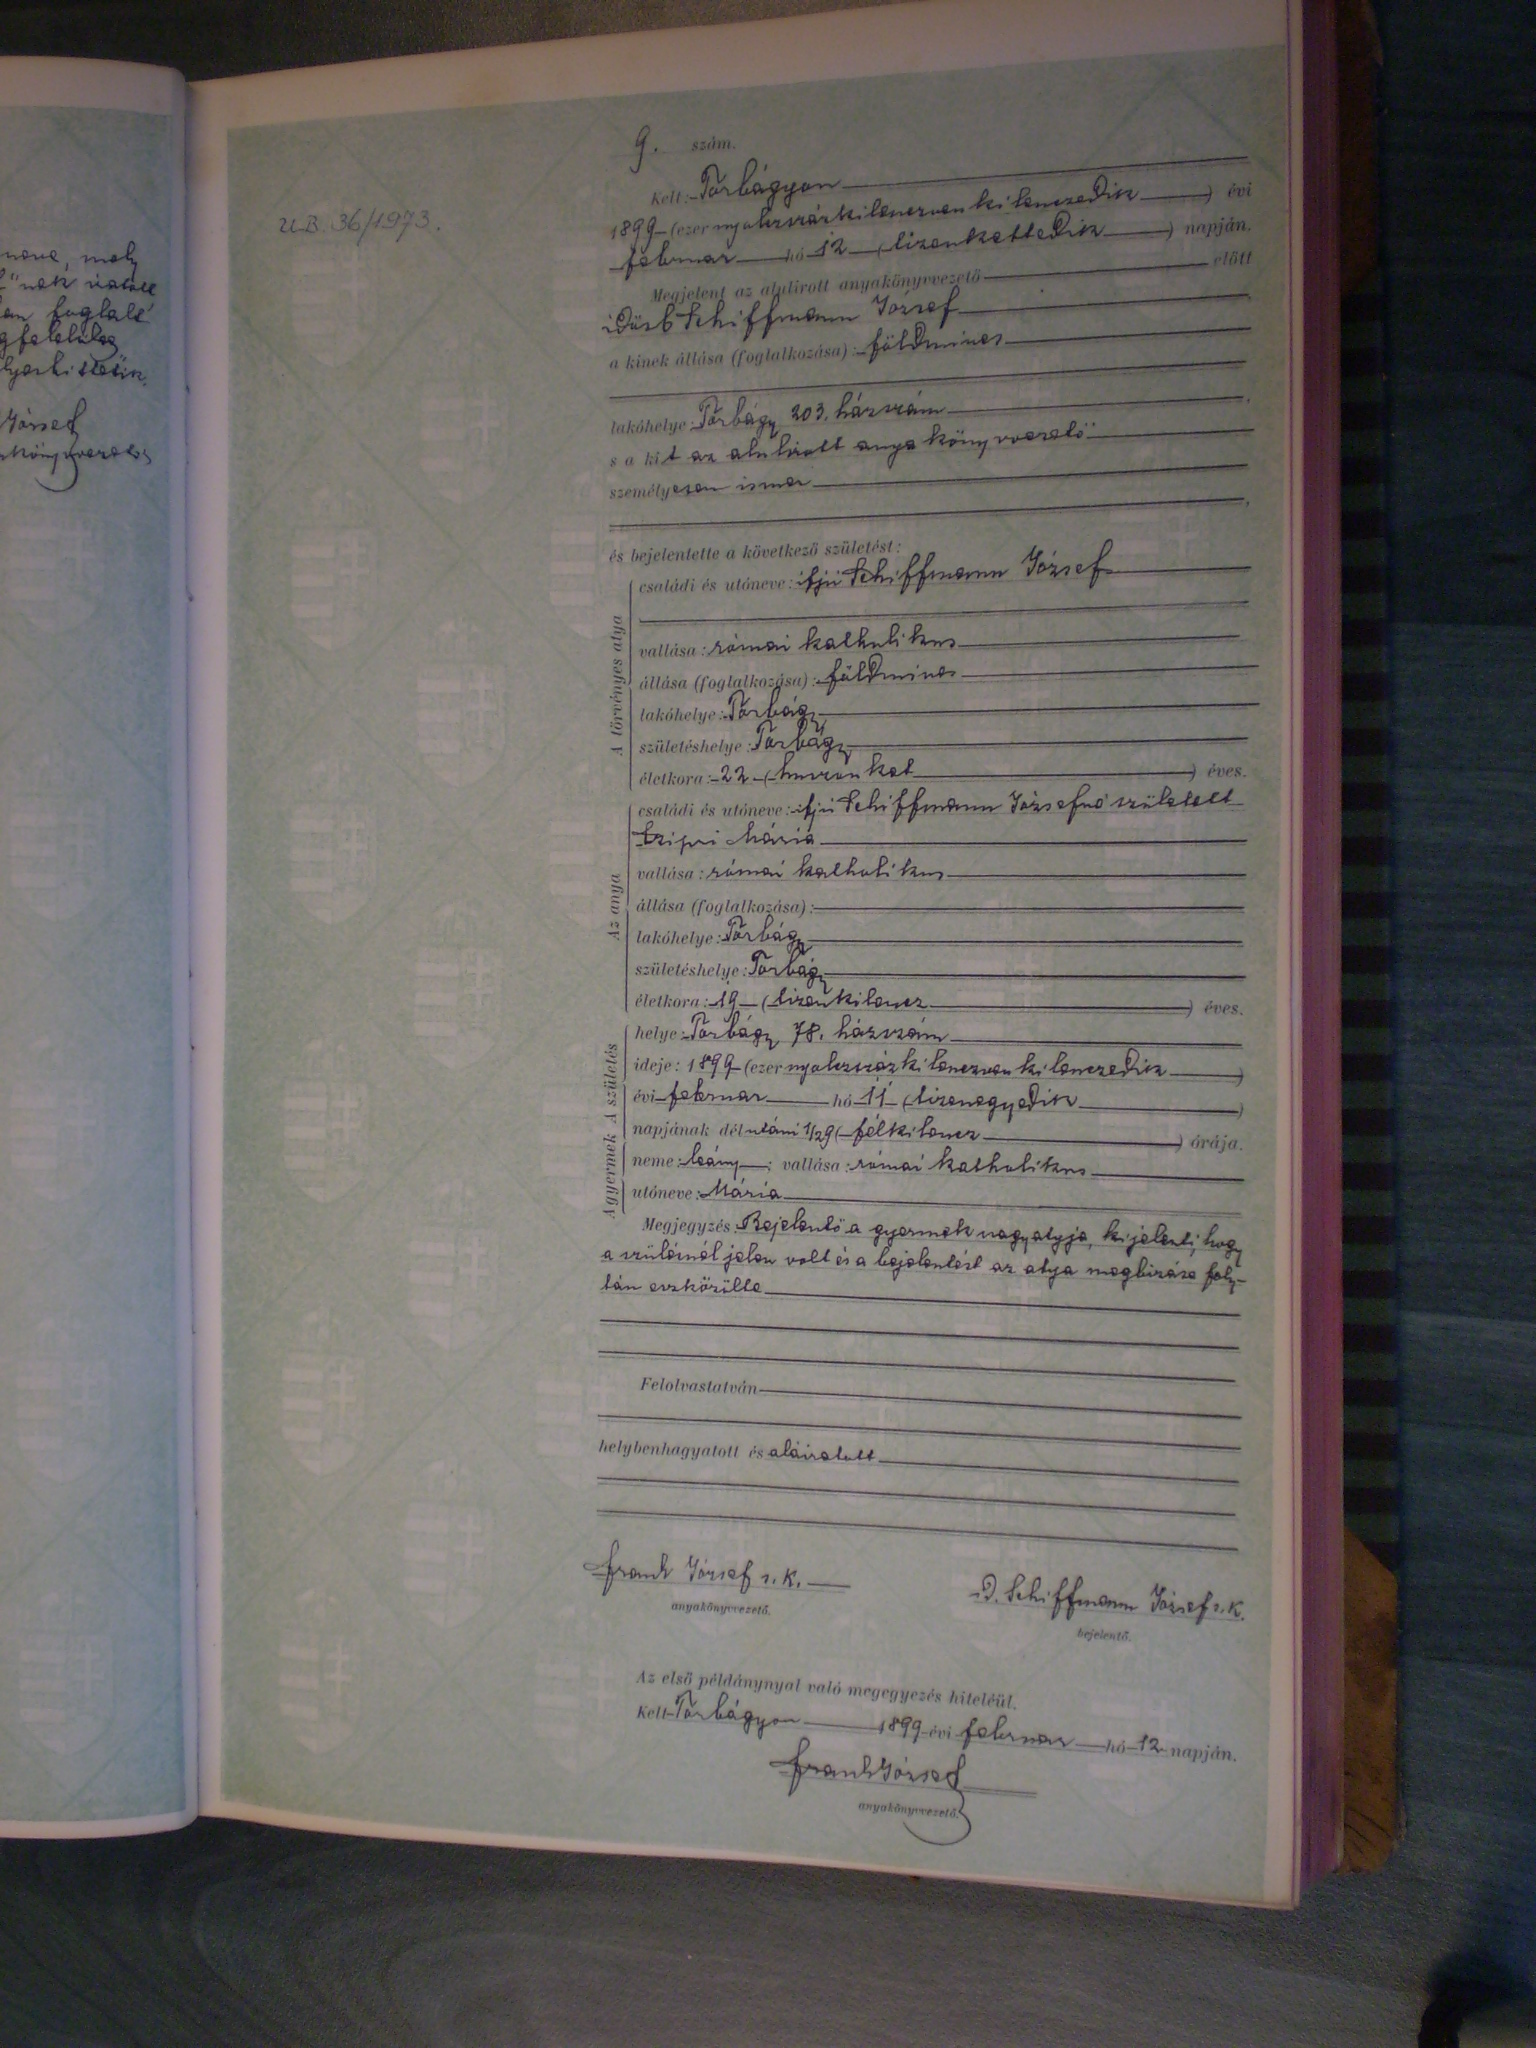 nek
an foglalt
József
U.B. 36/1973.
9. szám.
Kelt: Torbágyon
1899 (ezer nyolczszázkilenczvenkilenczedik) évi
februar hó 12 (tizenkettedik) napján.
Megjelent az alulirott anyakönyvvezető előtt
idősb Schiffmann József
a kinek állása (foglalkozása): földmives
lakóhelye: Torbágy 203. házszám
s a kit az alulirott anyakönyvvezető
személyesen ismer
és bejelentette a következő születést:
A törvényes atya
családi és utóneve: ifjú Schiffmann József
vallása: római katholikus
állása (foglalkozása): földmives
lakóhelye: Torbágy
születéshelye: Torbágy
életkora: 22 (huszonkét) éves.
Az anya
családi és utóneve: ifjú Schiffmann Józsefné született
Czipri Mária
vallása: római katholikus
állása (foglalkozása):
lakóhelye: Torbágy
születéshelye: Torbágy
életkora: 19 (tizenkilencz) éves.
A születés
helye: Torbágy 78. házszám
ideje: 1899 (ezer nyolczszázkilenczvenkilenczedik)
évi februar hó 11 (tizenegyedik)
napjának délutáni 1/29 (félkilencz) órája.
A gyermek
neme: leány; vallása: római katholikus
utóneve: Mária
Megjegyzés: Bejelentő a gyermek nagyatyja, kijelenti, hogy
a szülésnél jelen volt és a bejelentést az atya megbizása foly-
tán eszközölte
Felolvastatván
helybenhagyatott és aláiratott
Frank József s. k.
anyakönyvvezető.
id. Schiffmann József s. k.
bejelentő.
Az első példánynyal való megegyezés hiteléül.
Kelt Torbágyon 1899 évi februar hó 12 napján.
Frank József
anyakönyvvezető.